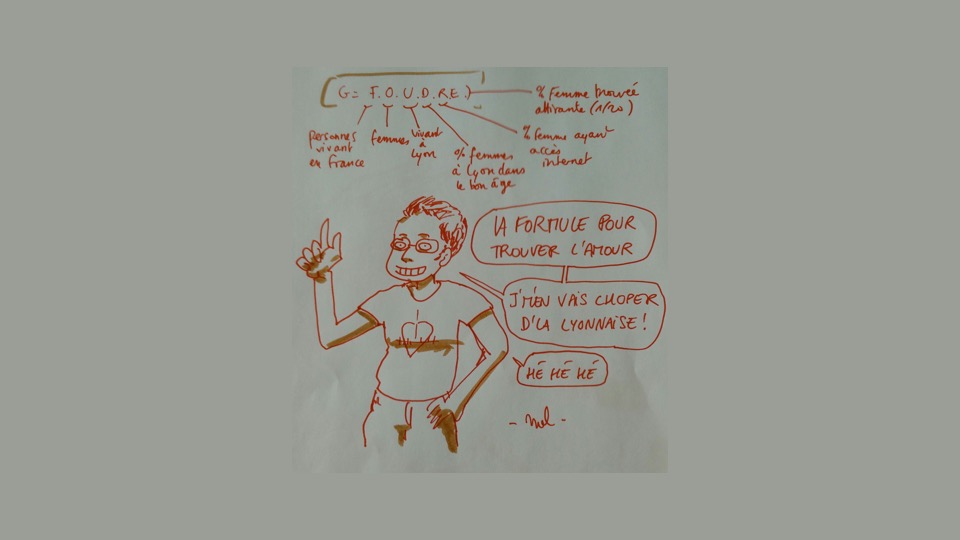 G = F.O.U.D.RE.)
% Femme trouvée
attirante (1/20)
personnes
vivant
en France
femmes
vivant
à
Lyon
% femmes
à Lyon dans
le bon âge
% Femme ayant
accès
internet
LA FORMULE POUR
TROUVER L'AMOUR
J'M'EN VAIS CHOPER
D'LA LYONNAISE !
HÉ HÉ HÉ
- mel -